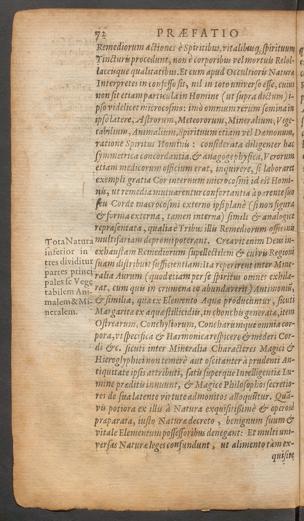 72 PRÆFATIO
Remediorum actiones è Spiritibus, vitalibusq, spirituum
Tincturis procedunt, non è corporibus vel mortuis Relol-
laceisque qualitatibus. Et cum apud Occultioris Naturæ
Interpretes in confesso sit, nil in toto universo esse, cuius
non sit etiam particula in Homine (ut supra dictum) i-
pso videlicet microcosmo: imò omnium rerum semina in
ipso latere, Astrorum, Meteororum, Mineralium, Vege-
tabilium, Animalium, spirituum etiam vel Dæmonum,
ratione Spiritus Hominis: considerata diligenter hac
symmetrica concordantia, & anagogephysica, Verorum
etiam medicorum officium erat, inquirere, si laboraret
exempli gratia Cor internum microcosmi id est Homi-
nis, ut remedia mutuarentur confortantia à parente suo
seu Corde macrocosmi externo ipsi planè (si non figura
& forma externa, tamen interna) simili & analogicè
repræsentata, qualia è Tribus illis Remediorum officinis
multifariam depromi poterant. Creavit enim Deus in-
exhaustam Remediorum supellectilem & cuivis Regioni
suam distribuit sufficientiam: ita reperirent inter Mine-
ralia Aurum (quod etiam per se spiritus omnes exhila-
rat, cum quis in crumena eo abundaverit) Antimoniũ,
& similia, quæ ex Elemento Aquæ producuntur, sicuti
Margarita ex aqua stillicidii, in conchis generata, item
Ostrearum, Conchyliorum, Concharumque omnia cor-
pora, vi specifica & Harmonica respicere & mederi Cor-
di &c. sicuti inter Mineralia Characteres Magici &
Hieroglyphici non temerè aut oscitanter à prudenti An-
tiquitate ipsis attributi, satis superque Intelligentiæ Lu-
mine præditis innuunt, & Magicè Philosophos secretio-
res de sua latente virtute admonitos alloquũtur. Quã-
vis potiora ex illis à Natura exquisitissimè & operosè
præparata, iusto Naturæ decreto, benignum suum &
vitale Elementum possessoribus denegant: Et multi uni-
versas Naturæ leges confundunt, ut alimento tam ex-
quisite
Tota Natura
inferior in
tres dividitur
partes princi
pales sc Vege
tabilem Ani-
malem & Mi-
neralem.